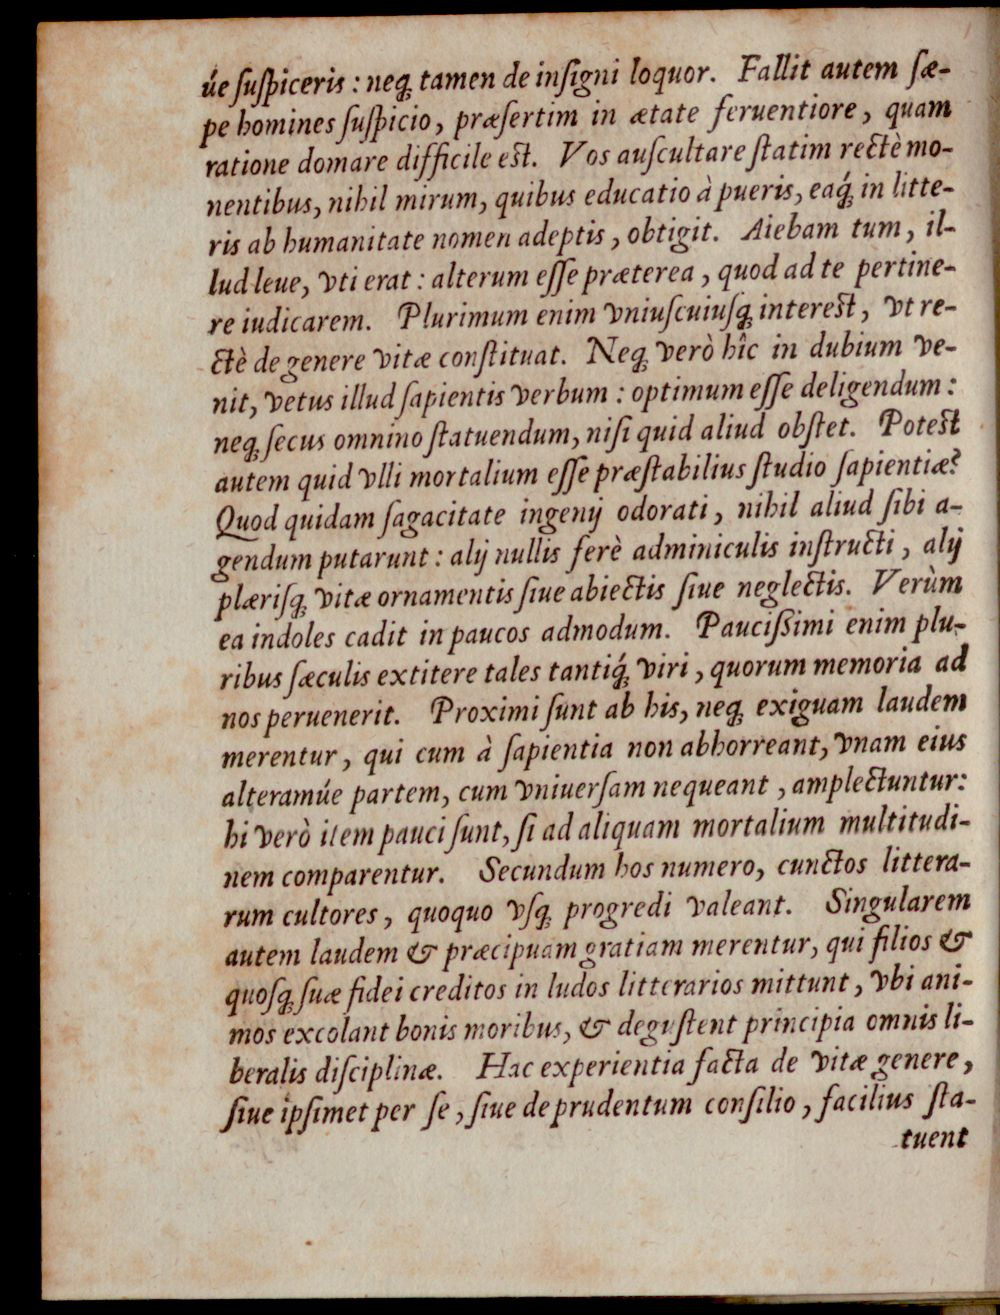 úe ſuſpiceris : neq́ꝫ tamen de inſigni loquor. Fallit autem ſæ-
pe homines ſuſpicio, præſertim in ætate feruentiore, quam
ratione domare difficile est. Vos auſcultare ſtatim rectè mo-
nentibus, nihil mirum, quibus educatio à pueris, eaq́ꝫ in litte-
ris ab humanitate nomen adeptis, obtigit. Aiebam tum, il-
lud leue, vti erat : alterum eſſe præterea, quod ad te pertine-
re iudicarem. Plurimum enim vniuſcuiuſqꝫ interest, vt re-
ctè de genere vitæ conſtituat. Neqꝫ verò hîc in dubium ve-
nit, vetus illud ſapientis verbum : optimum eſſe deligendum :
neqꝫ ſecus omnino ſtatuendum, niſi quid aliud obſtet. Potest
autem quid vlli mortalium eſſe præſtabilius ſtudio ſapientiæ?
Quod quidam ſagacitate ingenij odorati, nihil aliud ſibi a-
gendum putarunt : alij nullis ferè adminiculis inſtructi, alij
plæriſqꝫ vitæ ornamentis ſiue abiectis ſiue neglectis. Verùm
ea indoles cadit in paucos admodum. Pauciſſimi enim plu-
ribus ſæculis extitere tales tantiq́ꝫ viri, quorum memoria ad
nos peruenerit. Proximi ſunt ab his, neqꝫ exiguam laudem
merentur, qui cum à ſapientia non abhorreant, vnam eius
alteramúe partem, cum vniuerſam nequeant, amplectuntur:
hi verò item pauci ſunt, ſi ad aliquam mortalium multitudi-
nem comparentur. Secundum hos numero, cunctos littera-
rum cultores, quoquo vſqꝫ progredi valeant. Singularem
autem laudem & præcipuam gratiam merentur, qui filios &
quoſqꝫ ſuæ fidei creditos in ludos litterarios mittunt, vbi ani-
mos excolant bonis moribus, & deguſtent principia omnis li-
beralis diſciplinæ. Hac experientia facta de vitæ genere,
ſiue ipſimet per ſe, ſiue de prudentum conſilio, facilius ſta-
tuent